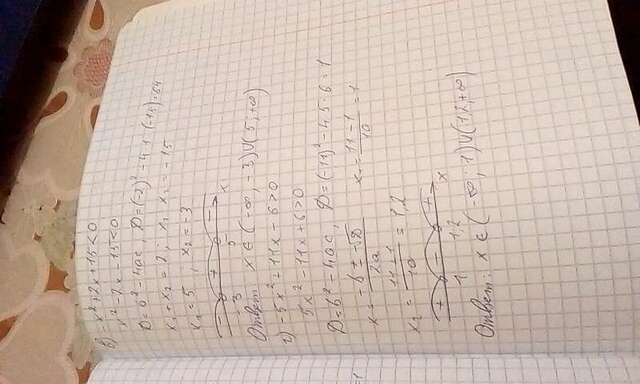 в) -x²+2x+15<0
x²-2x-15<0
D=b²-4ac, D=(-2)²-4·1·(-15)=64
x₁+x₂=2; x₁x₂=-15
x₁=5, x₂=-3
-3 5 x
Ответ: x∈(-∞; -3)∪(5; +∞)
г) -5x²+11x-6>0
5x²-11x+6>0
D=b²-4ac, D=(-11)²-4·5·6=1
x=(-b±√D)/2a x₁=(11-1)/10=1
x₂=(11+1)/10=1,2
+ - + 1 1,2 x
Ответ: x∈(-∞; 1)∪(1,2; +∞)